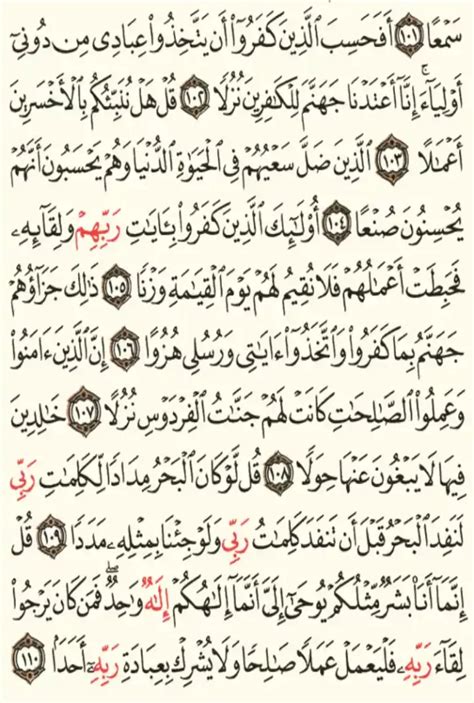 سَمْعًا ١٠١ أَفَحَسِبَ ٱلَّذِينَ كَفَرُوٓا۟ أَن يَتَّخِذُوا۟ عِبَادِى مِن دُونِىٓ
أَوْلِيَآءَ ۚ إِنَّآ أَعْتَدْنَا جَهَنَّمَ لِلْكَٰفِرِينَ نُزُلًا ١٠٢ قُلْ هَلْ نُنَبِّئُكُم بِٱلْأَخْسَرِينَ
أَعْمَٰلًا ١٠٣ ٱلَّذِينَ ضَلَّ سَعْيُهُمْ فِى ٱلْحَيَوٰةِ ٱلدُّنْيَا وَهُمْ يَحْسَبُونَ أَنَّهُمْ
يُحْسِنُونَ صُنْعًا ١٠٤ أُو۟لَٰٓئِكَ ٱلَّذِينَ كَفَرُوا۟ بِـَٔايَٰتِ رَبِّهِمْ وَلِقَآئِهِۦ
فَحَبِطَتْ أَعْمَٰلُهُمْ فَلَا نُقِيمُ لَهُمْ يَوْمَ ٱلْقِيَٰمَةِ وَزْنًا ١٠٥ ذَٰلِكَ جَزَآؤُهُمْ
جَهَنَّمُ بِمَا كَفَرُوا۟ وَٱتَّخَذُوٓا۟ ءَايَٰتِى وَرُسُلِى هُزُوًا ١٠٦ إِنَّ ٱلَّذِينَ ءَامَنُوا۟
وَعَمِلُوا۟ ٱلصَّٰلِحَٰتِ كَانَتْ لَهُمْ جَنَّٰتُ ٱلْفِرْدَوْسِ نُزُلًا ١٠٧ خَٰلِدِينَ
فِيهَا لَا يَبْغُونَ عَنْهَا حِوَلًا ١٠٨ قُل لَّوْ كَانَ ٱلْبَحْرُ مِدَادًا لِّكَلِمَٰتِ رَبِّى
لَنَفِدَ ٱلْبَحْرُ قَبْلَ أَن تَنفَدَ كَلِمَٰتُ رَبِّى وَلَوْ جِئْنَا بِمِثْلِهِۦ مَدَدًا ١٠٩ قُلْ
إِنَّمَآ أَنَا۠ بَشَرٌ مِّثْلُكُمْ يُوحَىٰٓ إِلَىَّ أَنَّمَآ إِلَٰهُكُمْ إِلَٰهٌ وَٰحِدٌ ۖ فَمَن كَانَ يَرْجُوا۟
لِقَآءَ رَبِّهِۦ فَلْيَعْمَلْ عَمَلًا صَٰلِحًا وَلَا يُشْرِكْ بِعِبَادَةِ رَبِّهِۦٓ أَحَدًۢا ١١٠